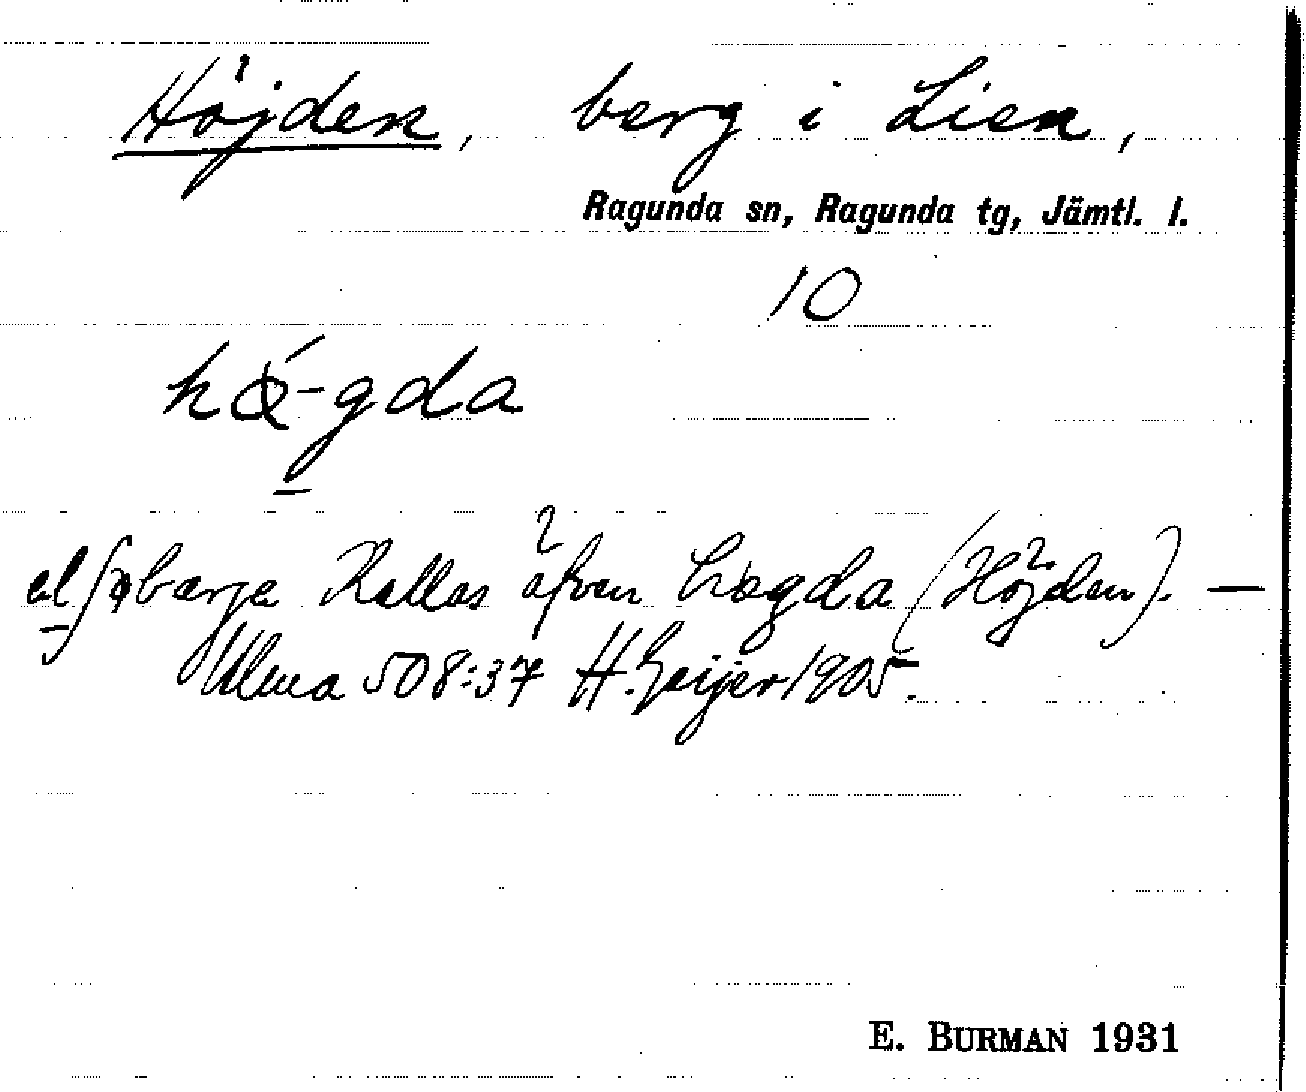 Höjden, berg i Lien,
Ragunda sn, Ragunda tg, Jämtl. l.
10
kallas äfven (Höjden). —
Ulma 508:37 H. Geijer 1905.
E. BURMAN 1931